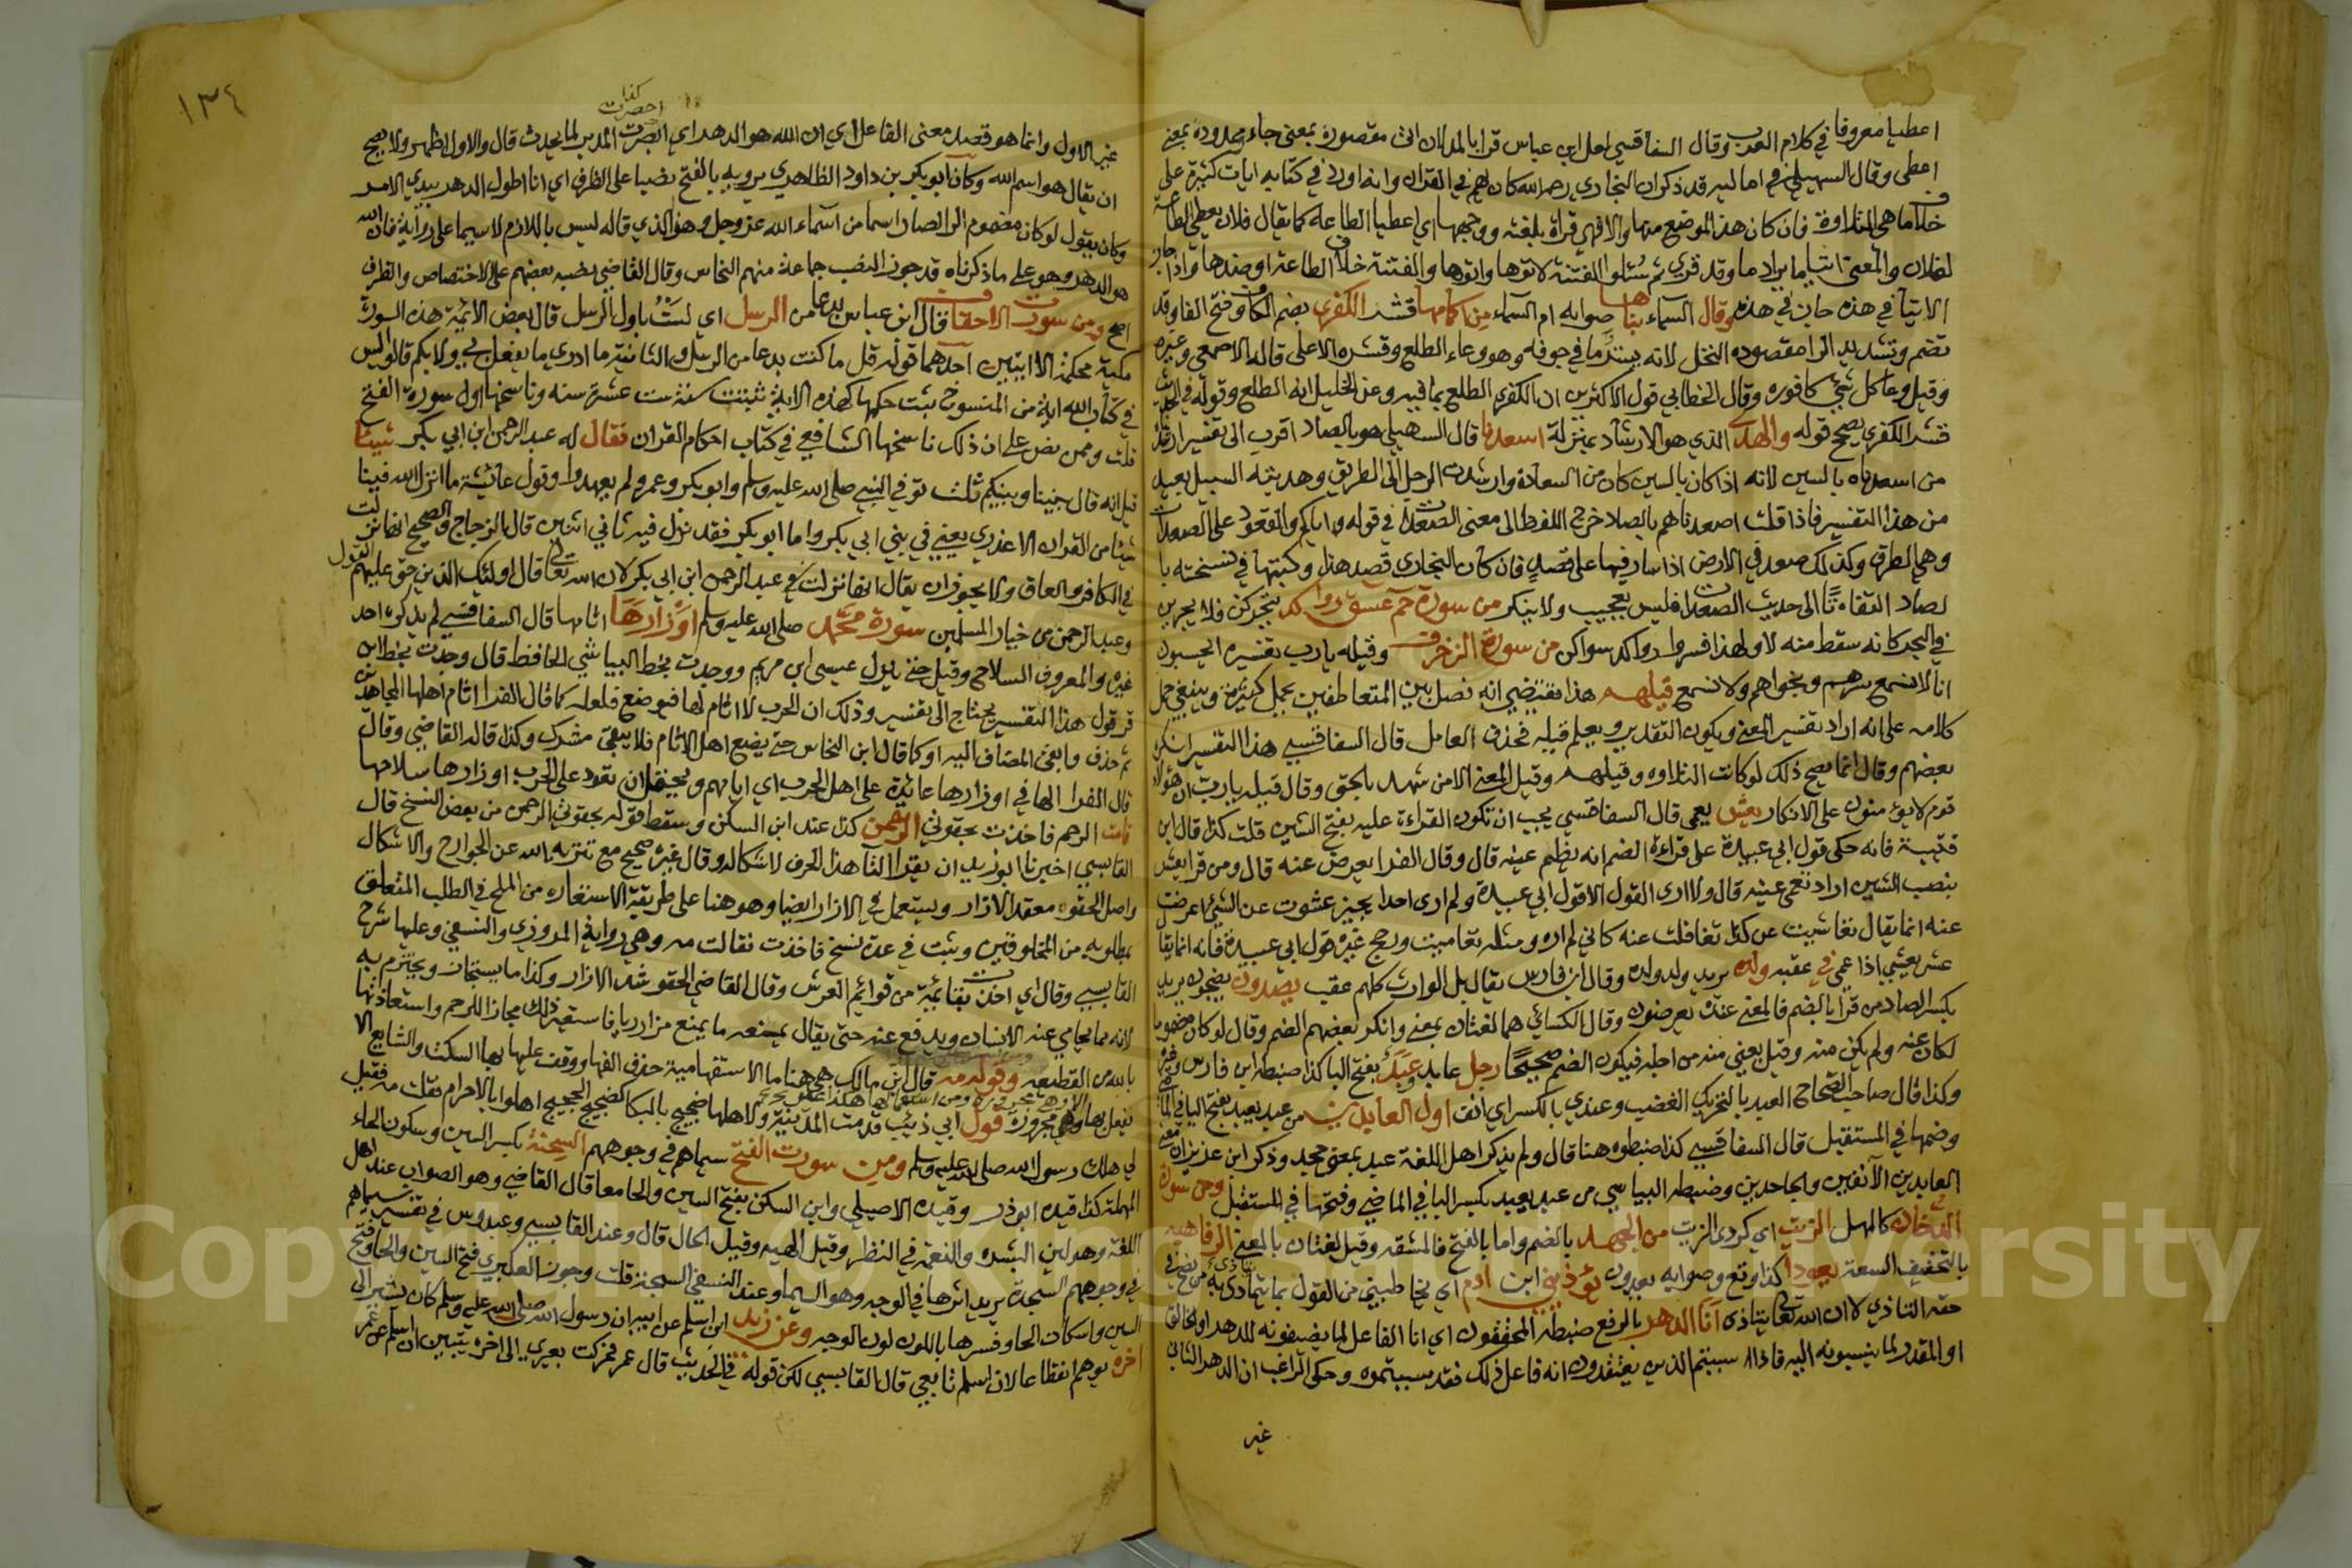 اعطيا معروفا في كلام العرب وقال السفاقسي لعل ابن عباس قرا بالمد لان اتى مقصورة بمعنى جاء وممدودة بمعنى
اعطى وقال السهيلي في اماليه قد ذكر ان البخاري رحمه الله كان يهم في القران وانه اورد في كتابه ايات كثيرة على
خلاف ما هي التلاوة فان كان هذا الموضع منها والا فهي قراة بلغته ووجهها اي اعطيا الطاعة كما يقال فلان يعطي الطاعة
لفلان والمعنى ائتيا ما يراد بها وقد قرى ثم سئلوا الفتنة لاتوها واتوها والفتنة خلاف الطاعة او ضدها واذا جاز
الاتيا في هذه جاز في هذه وقال السماء بناها صوابه ام السماء من اكمامها قشر الكفري بضم الكاف وفتح الفا وقد
تضم وتشديد الرا مقصوده النخل لانه يستر ما في جوفه وهو وعاء الطلع وقشره الاعلى قاله الاصمعي وغيره
وقيل وعا كل شي كافوره وقال الخطابي قول الاكثرين ان الكفري الطلع بما فيه وعن الخليل انه الطلع وقوله في الحديث
قشر الكفري يصحح قوله والهدى الذي هو الارشاد بمنزلة اسعدنا قال السهيلي هو بالصاد اقرب الى تفسير ارشدناه
من اسعدناه بالسين لانه اذا كان بالسين كان من السعادة وارشدت الرجل الى الطريق وهديته السبيل بعيد
من هذا التفسير فاذا قلت اصعدناهم بالصاد خرج اللفظ الى معنى الصعدات في قوله واياكم والقعود على الصعدات
وهي الطرق وكذلك صعد في الارض اذا سار فيها على قصد فان كان البخاري قصد هذا وكتبها في نسخته با
لصاد التفاتا الى حديث الصعدات فليس بعجيب ولا ينكر من سورة حم عسق رواكد يتحركن فلا يجرين
في البحر كانه سقط منه لا ولهذا فسروا رواكد سواكن من سورة الزخرف وقيله يارب تفسيره ايحسبون
انا لا نسمع سرهم ونجواهم ولا نسمع قيلهم هذا يقتضي انه فصل بين المتعاطفين بجمل كثيرة وينبغي حمل
كلامه على انه اراد تفسير المعنى ويكون التقدير ويعلم قيله فحذف العامل قال السفاقسي هذا التفسير انكره
بعضهم وقال انما يصح ذلك لو كانت التلاوه وقيلهم وقيل المعنى الا من شهد بالحق وقال قيله يارب ان هؤلاء
قوم لا يؤمنون على الانكار يعش يعمى قال السفاقسي يجب ان تكون القراءة عليه بفتح الشين قلت كذا قال ابن
قتيبة فانه حكى قول ابي عبيدة على قراءة الضم انه يظلم عينه قال وقال الفرا يعرض عنه قال ومن قرا يعش
بنصب الشين اراد تعمى عينه قال ولا ارى القول الا قول ابي عبيدة ولم ارى احدا يجيز عشوت عن الشئ اعرضت
عنه انما يقال تغاشيت عن كذا تغافلت عنه كاني لم اره ومثله تعاميت ورجح غيره قول ابي عبيدة فانه انما يقا
عشى يعشى اذا عمى في عقبه ولده يريد ولد ولده وقال ابن فارس يقال بل الوارث كلهم عقب يصدون يضجون يريد
بكسر الصاد من قرا بالضم فالمعنى عنده يعرضون وقال الكسائي هما لغتان بمعنى وانكر بعضهم الضم وقال لو كان مضموما
لكان عنه ولم يكن منه وقيل يعني منه من اجله فيكون الضم صحيحا رجل عابد وعبد بفتح البا كذا ضبطه ابن فارس وغيره
وكذا قال صاحب الصحاح العبد بالتحريك الغضب وعبدي بالكسر اي انف اول العابدين من عبد يعبد بفتح البا في الماضي
وضمها في المستقبل قال السفاقسي كذا ضبطوه هنا قال ولم يذكر اهل اللغة عبد بمعنى جحد وذكر ابن عزيز ان معنى
العابدين الآنفين والجاحدين وضبطه البياسي من عبد يعبد بكسر البا في الماضي وفتحها في المستقبل ومن سورة
الدخان كالمهل الزيت اي كردى الزيت من الجهد بالضم واما بالفتح فالمشقه وقيل لغتان بالمعنى الرفاهيه
بالتخفيف السعة يعودا كذا وقع وصوابه يعودون يؤذيني ابن ادم اي يخاطبني من القول بما يتاذى به من يصح في
حقه التاذي لا ان الله تعالى يتاذى انا الدهر بالرفع ضبطه المحققون اي انا الفاعل لما يضيفونه للدهر او الخالق
او المقدر لما ينسبونه اليه فاذا سببتم الذين يعتقدون انه فاعل ذلك فقد سببتموه وحكى الراغب ان الدهر الثاني
غير
١٣٤
كذا
احضرت
غير الاول وانما هو قصد معنى الفاعل اي ان الله هو الدهر اي المدبر لما يحدث قال والاول اظهر ولا يصح
ان يقال هو اسم الله وكان ابو بكر بن داود الظاهري يرويه بالفتح نصبا على الظرف اي انا اطول الدهر بيدي الامر
وكان يقول لو كان مضموم الرا لصار اسما من اسماء الله عز وجل وهو الذي قاله ليس باللازم لا سيما على رواية فان الله
هو الدهر وهو على ما ذكرناه قد جوز النصب جماعة منهم النحاس وقال القاضي نصبه بعضهم على الاختصاص والظرف
اصح ومن سورة الاحقاف قال ابن عباس بدعا من الرسل اي لست باول الرسل قال بعض الائمة هذه السورة
مكية محكمة الا ايتين احدهما قوله قل ما كنت بدعا من الرسل والثانية ما ادري ما يفعل بي ولا بكم قالوا ليس
في كتاب الله اية من المنسوخ ثبت حكمها كهذه الاية ثبتت ست عشرة سنه وناسخها اول سورة الفتح
قلت وممن نص على ان ذلك ناسخها الشافعي في كتاب احكام القران فقال له عبد الرحمن ابن ابي بكر شيئا
قيل انه قال بيننا وبينكم ثلث توفي النبي صلى الله عليه وسلم وابو بكر وعمر ولم يعهدوا وقول عائشة ما انزل الله فينا
شيئا من القران الا عذري يعني في بني ابي بكر واما ابو بكر فقد نزل فيه ثاني اثنين قال الزجاج والصحيح انها نزلت
في الكافر العاق ولا يجوز ان يقال انها نزلت في عبد الرحمن ابن ابي بكر لان الله تعالى قال اولئك الذين حق عليهم القول
وعبد الرحمن من خيار المسلمين سورة محمد صلى الله عليه وسلم اوزارها اثامها قال السفاقسي لم يذكره احد
غيره والمعروف السلاح وقيل حتى ينزل عيسى ابن مريم ووجدت بخط البياشي الحافظ قال وجدت بخط ابن
قرقول هذا التفسير يحتاج الى تفسير وذلك ان الحرب لا اثام لها فيوضع فلعله كما قال الفرا اثام اهلها المجاهدين
ثم حذف وابقى المضاف اليه او كما قال ابن النحاس حتى يضع اهل الاثام فلا يبقى مشرك وكذا قاله القاضي وقال
قال الفرا الها في اوزارها عائدة على اهل الحرب اي اثامهم ويحتمل ان تعود على الحرب اوزارها سلاحها
قامت الرحم فاخذت بحقوي الرحمن كذا عند ابن السكن وسقط قوله بحقوي الرحمن من بعض النسخ قال
القابسي اخبرنا ابو زيد ان يقرا لنا هذا الحرف لاشكاله وقال غيره صحيح مع تنزيه الله عن الجوارح والاشكال
واصل الحقوه معقد الازار ويستعمل في الازار ايضا وهو هنا على طريقة الاستعاره من الملح في الطلب المتعلق
بمطلوبه من المخلوقين وثبت في عدة نسخ فاخذت فقالت مه وهي رواية المروزي والنسفي وعليها شرح
القابسي وقال اي اخذت بقائمة من قوائم العرش وقال القاضي الحقو شد الازار وكذا ما يستجار ويحتزم به
لانه مما يحامي عنه الانسان ويدفع عنه حتى يقال يمنعه ما يمنع من ازاره فاستعير ذلك مجازا للرحم واستعاذتها
بالله من القطيعه وقوله مه قال ابن مالك هي هنا ما الاستفهامية حذف الفها ووقف عليها بها السكت والشايع الا
يفعل بها وهي مجرورة قول ابي ذئيب قدمت المدينة ولاهلها ضجيج بالبكا كضجيج الحجيج اهلوا بالاحرام فقلت مه فقيل
لي هلك رسول الله صلى الله عليه وسلم ومن سورة الفتح سيماهم في وجوههم السحنة بكسر السين وسكون الحاء
المهملة كذا قيده ابو ذر وقيده الاصيلي وابن السكن بفتح السين والحا معا قال القاضي وهو الصواب عند اهل
اللغة وهو لين البشره والنعمة في النظر وقيل الهيه وقيل الحال قال وعند القابسي وعبدوس في تفسير سيماهم
في وجوههم السجدة يريد اثرها في الوجه وهو السيما وعند النسفي السبحة قلت وجوز العكبري فتح السين والحا وفتح
السين واسكان الحا وفسرها باللون لون الوجه وعن زيد ابن اسلم عن ابيه ان رسول الله صلى الله عليه وسلم كان يسير الى
اخره يوهم انقطاعا لان اسلم تابعي قال القابسي لكن قوله في الحديث قال عمر فحركت بعيري الى اخره يبين ان اسلم عن عمر